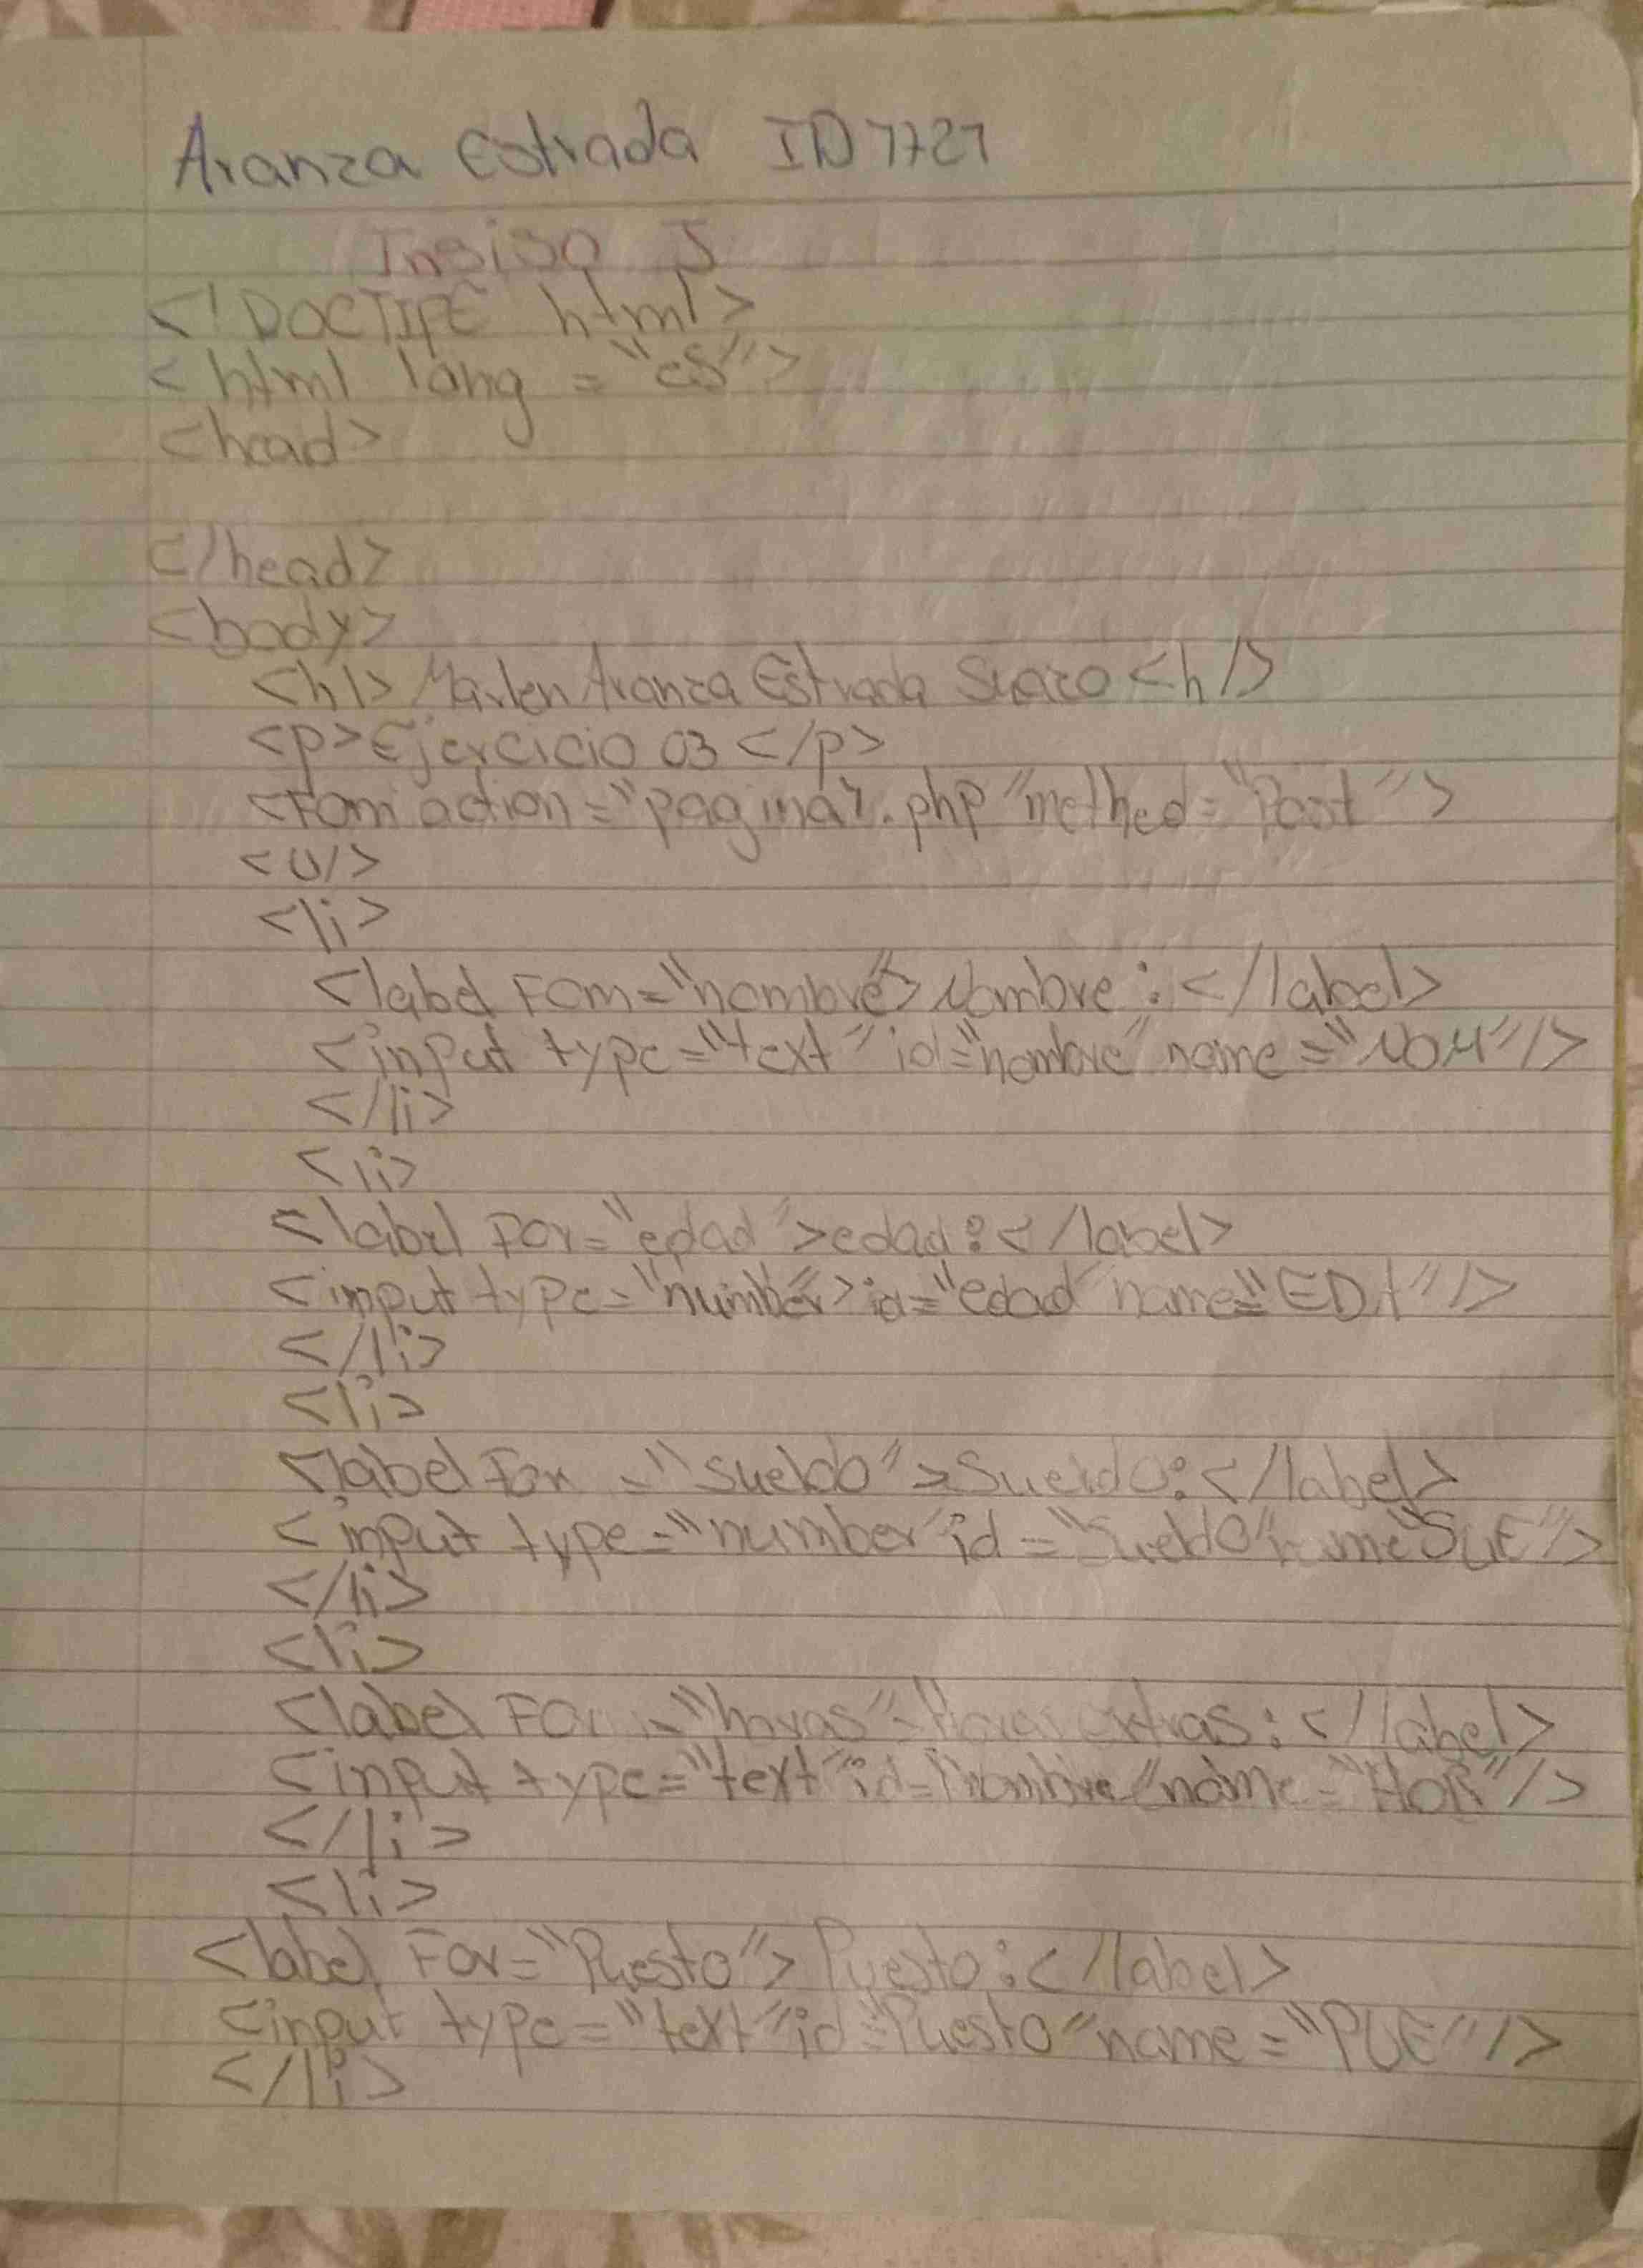 Aranza Estrada ID 7727
Insiso J
<!DOCTIPE html>
<html lang = "es">
<head>
</head>
<body>
<h1> Marlen Aranza Estrada Suazo <h/>
<p> Ejercicio 03 </p>
<Fom action = "pagina1.php" method = "Post">
<ul>
<li>
<label Fom="nombre"> Nombre : </label>
<input type="text" id="nombre" name = "NOM"/>
</li>
<li>
<label For="edad">edad:</label>
<input type="number> id="edad" name="EDA"/>
</li>
<li>
<label For = "Sueldo">Sueldo:</label>
<input type="number" id = "Sueldo" name"SUE"/>
</li>
<li>
<label For = "horas" Horas extras: </label>
<input type="text" id="nombre" name="HOR"/>
</li>
<li>
<label For="Puesto"> Puesto:</label>
<input type="text" id="Puesto" name="PUE"/>
</li>